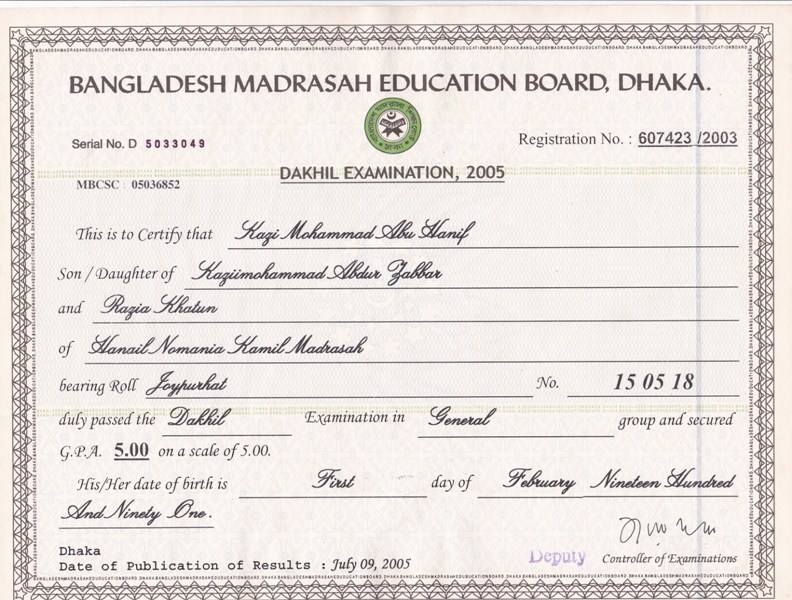 BANGLADESH MADRASAH EDUCATION BOARD, DHAKA.
Serial No. D 5033049
Registration No. : 607423 /2003
DAKHIL EXAMINATION, 2005
MBCSC : 05036852
This is to Certify that Kazi Mohammad Abu Hanif
Son / Daughter of Kaziimohammad Abdur Zabbar
and Razia Khatun
of Hanail Nomania Kamil Madrasah
bearing Roll Joypurhat No. 15 05 18
duly passed the Dakhil Examination in General group and secured
G.P.A. 5.00 on a scale of 5.00.
His/Her date of birth is First day of February Nineteen Hundred
And Ninety One.
Dhaka
Date of Publication of Results : July 09, 2005
Deputy Controller of Examinations